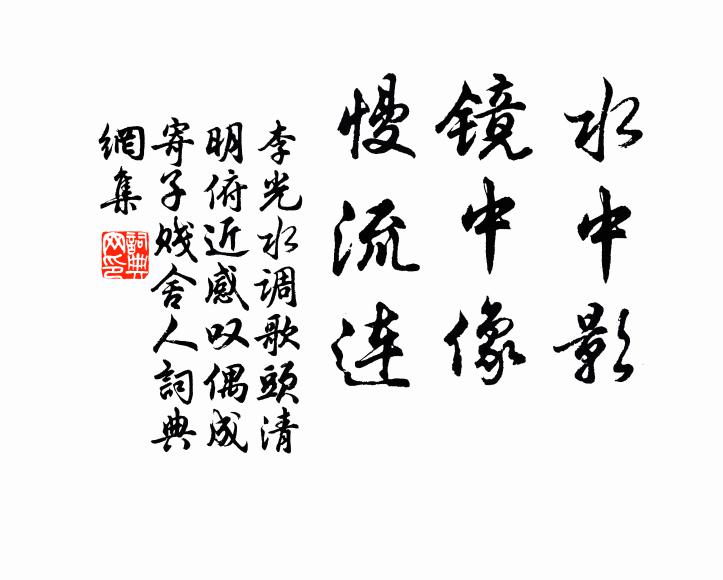 水中影
镜中像
慢流连
李光水调歌頭清
明俯近感叹偶成
寄子贱舍人詞典
網集
詞典网印